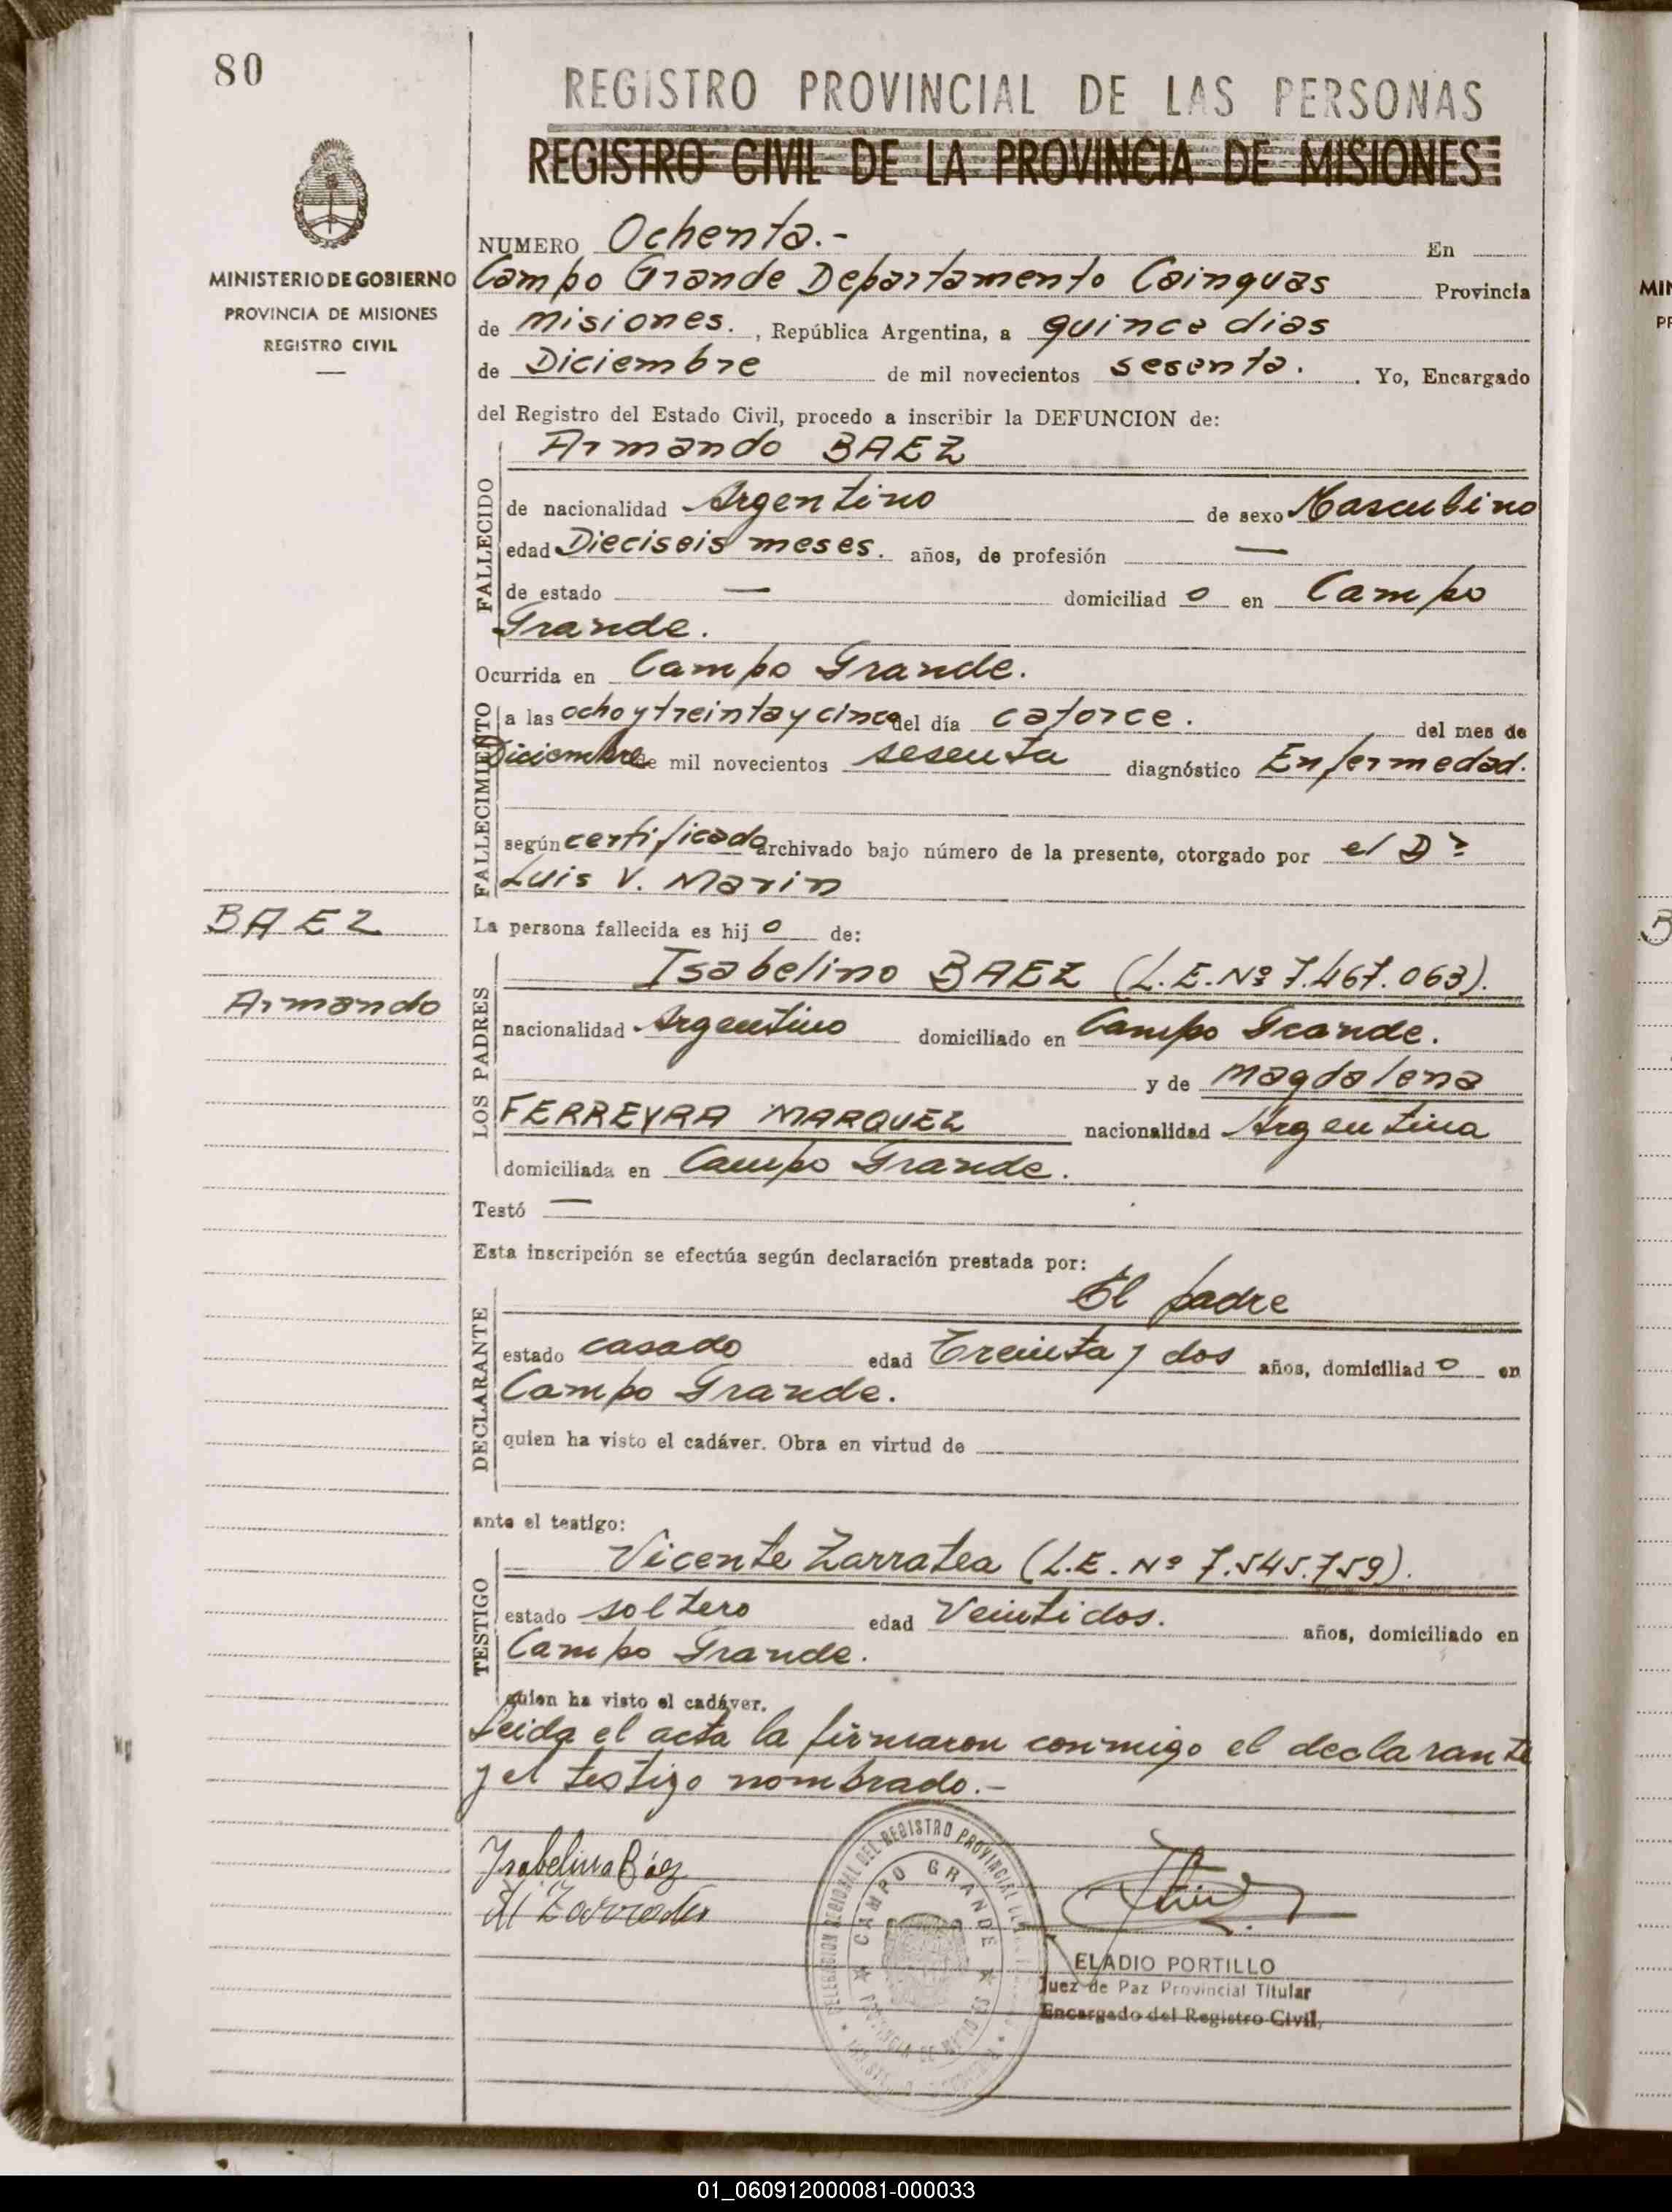 80
REGISTRO PROVINCIAL DE LAS PERSONAS
REGISTRO CIVIL DE LA PROVINCIA DE MISIONES
MINISTERIO DE GOBIERNO
PROVINCIA DE MISIONES
REGISTRO CIVIL
NUMERO Ochenta.- En
Campo Grande Departamento Cainguas Provincia
de Misiones. , República Argentina, a quince dias
de Diciembre de mil novecientos sesenta. . Yo, Encargado
del Registro del Estado Civil, procedo a inscribir la DEFUNCION de:
FALLECIDO
Armando BAEZ
de nacionalidad Argentino de sexo Masculino
edad Dieciseis meses. años, de profesión —
de estado — domiciliad o en Campo
Grande.
Ocurrida en Campo Grande.
FALLECIMIENTO
a las ocho y treinta y cinco del día catorce. del mes de
Diciembre de mil novecientos sesenta diagnóstico Enfermedad.
según certificado archivado bajo número de la presente, otorgado por el Dr
Luis V. Marin
BAEZ
Armando
La persona fallecida es hij o de:
LOS PADRES
Isabelino BAEZ (L.E. Nº 7.467.063).
nacionalidad Argentino domiciliado en Campo Grande.
y de Magdalena
FERREYRA MARQUEZ nacionalidad Argentina
domiciliada en Campo Grande.
Testó —
Esta inscripción se efectúa según declaración prestada por:
DECLARANTE
El padre
estado casado edad Treinta y dos años, domiciliad o en
Campo Grande.
quien ha visto el cadáver. Obra en virtud de
ante el testigo:
TESTIGO
Vicente Zarratea (L.E. Nº 7.545.759).
estado soltero edad Veintidos. años, domiciliado en
Campo Grande.
quien ha visto el cadáver.
Leida el acta la firmaron conmigo el declarante
y el testigo nombrado.-
Isabelino Báez
CAMPO GRANDE
ELADIO PORTILLO
Juez de Paz Provincial Titular
Encargado del Registro Civil
01_060912000081-000033